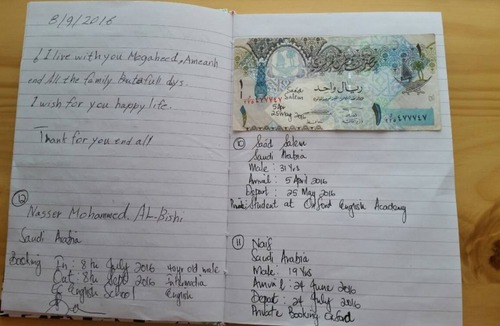 8/9/2016
I live with you Mogaheed, Ameanh
end All the family. Butafull dys.
I wish for you happy life.
Thank for you end all
12
Nasser Mohammed AL-Bishi
Saudi Arabia
Booking In : 8th July 2016 40 year old male
Out : 8th Sept 2016
English School English
ريال واحد
١
١
٤٧٧٧٤٧
٤٧٧٧٤٧
Saad
Salem
5 Apr
25 May 2016
10 Saad Salem
Saudi Arabia
Male : 31 Yrs
Arrival : 5 April 2016
Depart : 25 May 2016
Student at Oxford English Academy
11 Naif
Saudi Arabia
Male : 19 Yrs
Arrival : 24 June 2016
Depart : 24 July 2016
Private Booking Oxford